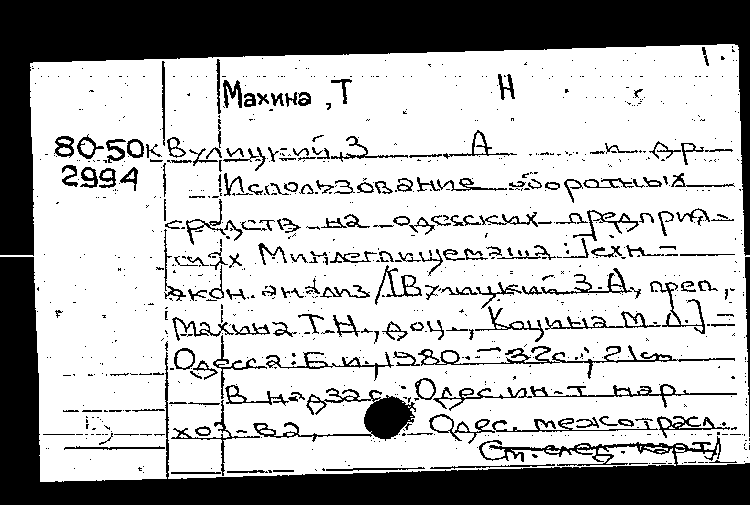 1.
Махина, Т Н
80-50к Вулицкий, З А и др.
2994 Использование оборотных
средств на одесских предприя-
тиях Минлегпищемаша: Техн-
экон. анализ/[Вулицкий З.А., преп.,
Махина Т.Н., доц., Коцина М.Л.] -
Одесса: Б.и., 1980. - 32с.; 21см
В надзаг.: Одес. ин-т нар.
хоз-ва, Одес. межотрасл.
См. след. карт.